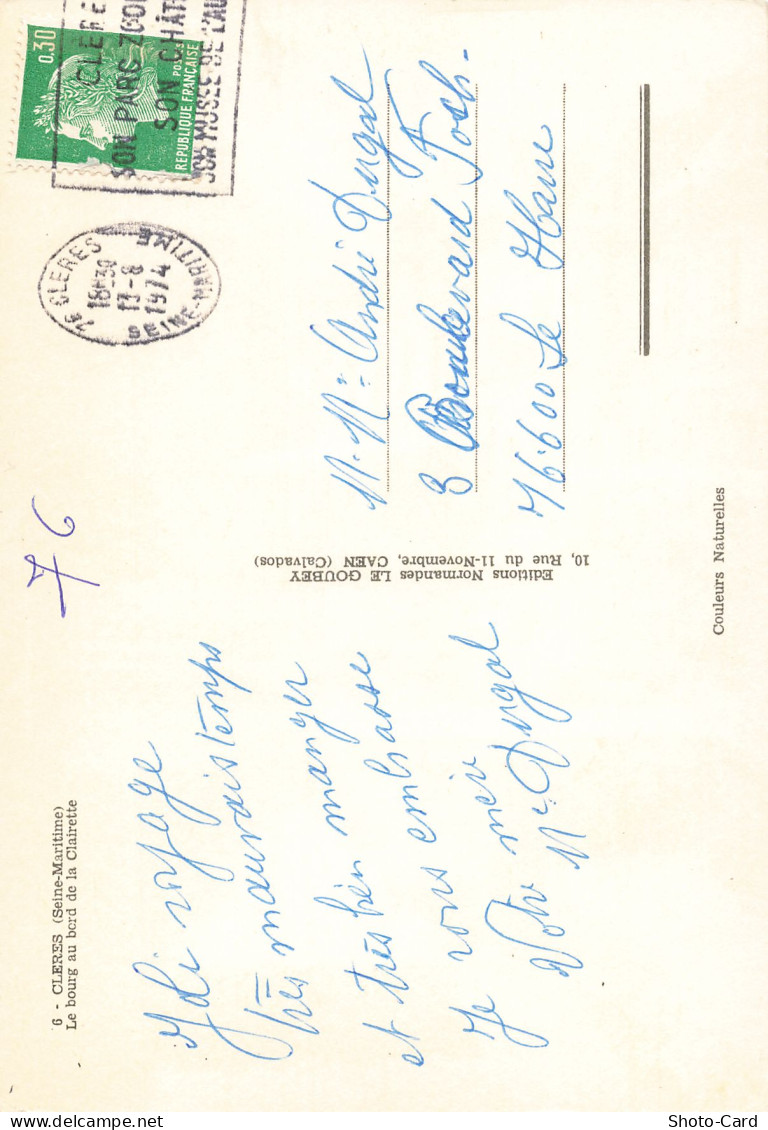 6 - CLERES (Seine-Maritime)
Le bourg au bord de la Clairette
Joli voyage
très mauvais temps
et très bien manger
Je vous embrasse
Votre mère
Me Dugal
Editions Normandes LE GOUBEY
10, Rue du 11-Novembre, CAEN (Calvados)
76
76 CLERES
18H30
13-8
1974
SEINE-MARITIME
0,30
POSTES
REPUBLIQUE FRANÇAISE
CLERE
SON PARC ZOOL
SON CHÂT
SON MUSEE DE L'AU
M. Me André Dugal
3 Boulevard Foch.
76600 Le Havre
Couleurs Naturelles
Shoto-Card